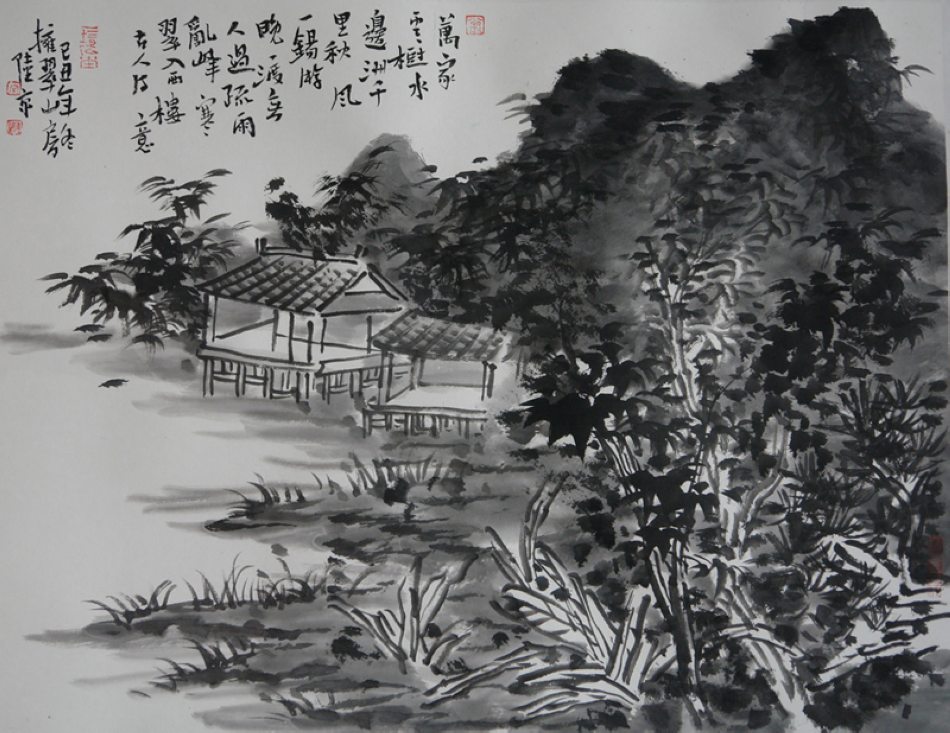 萬家
雲樹水
邊洲千
里秋風
一錫游
晚渡無
人過疏雨
亂峰寒
翠入西樓
古人诗意
己丑年
擁翠山房
陸